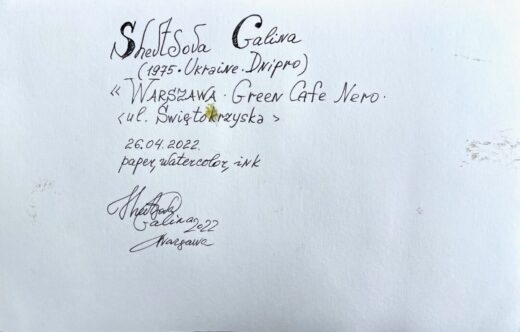 Shevtsova Galina
(1975 · Ukraine · Dnipro)
« WARSZAWA · Green Cafe Nero ·
<ul. Świętokrzyska >
26.04.2022.
paper, watercolor, ink
Shevtsova
Galina 2022
Warzawa